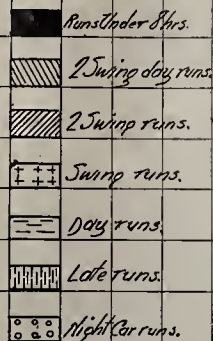 Runs Under 8 hrs.
2 Swing day runs.
2 Swing runs.
Swing runs.
Day runs.
Late runs.
Night Car runs.